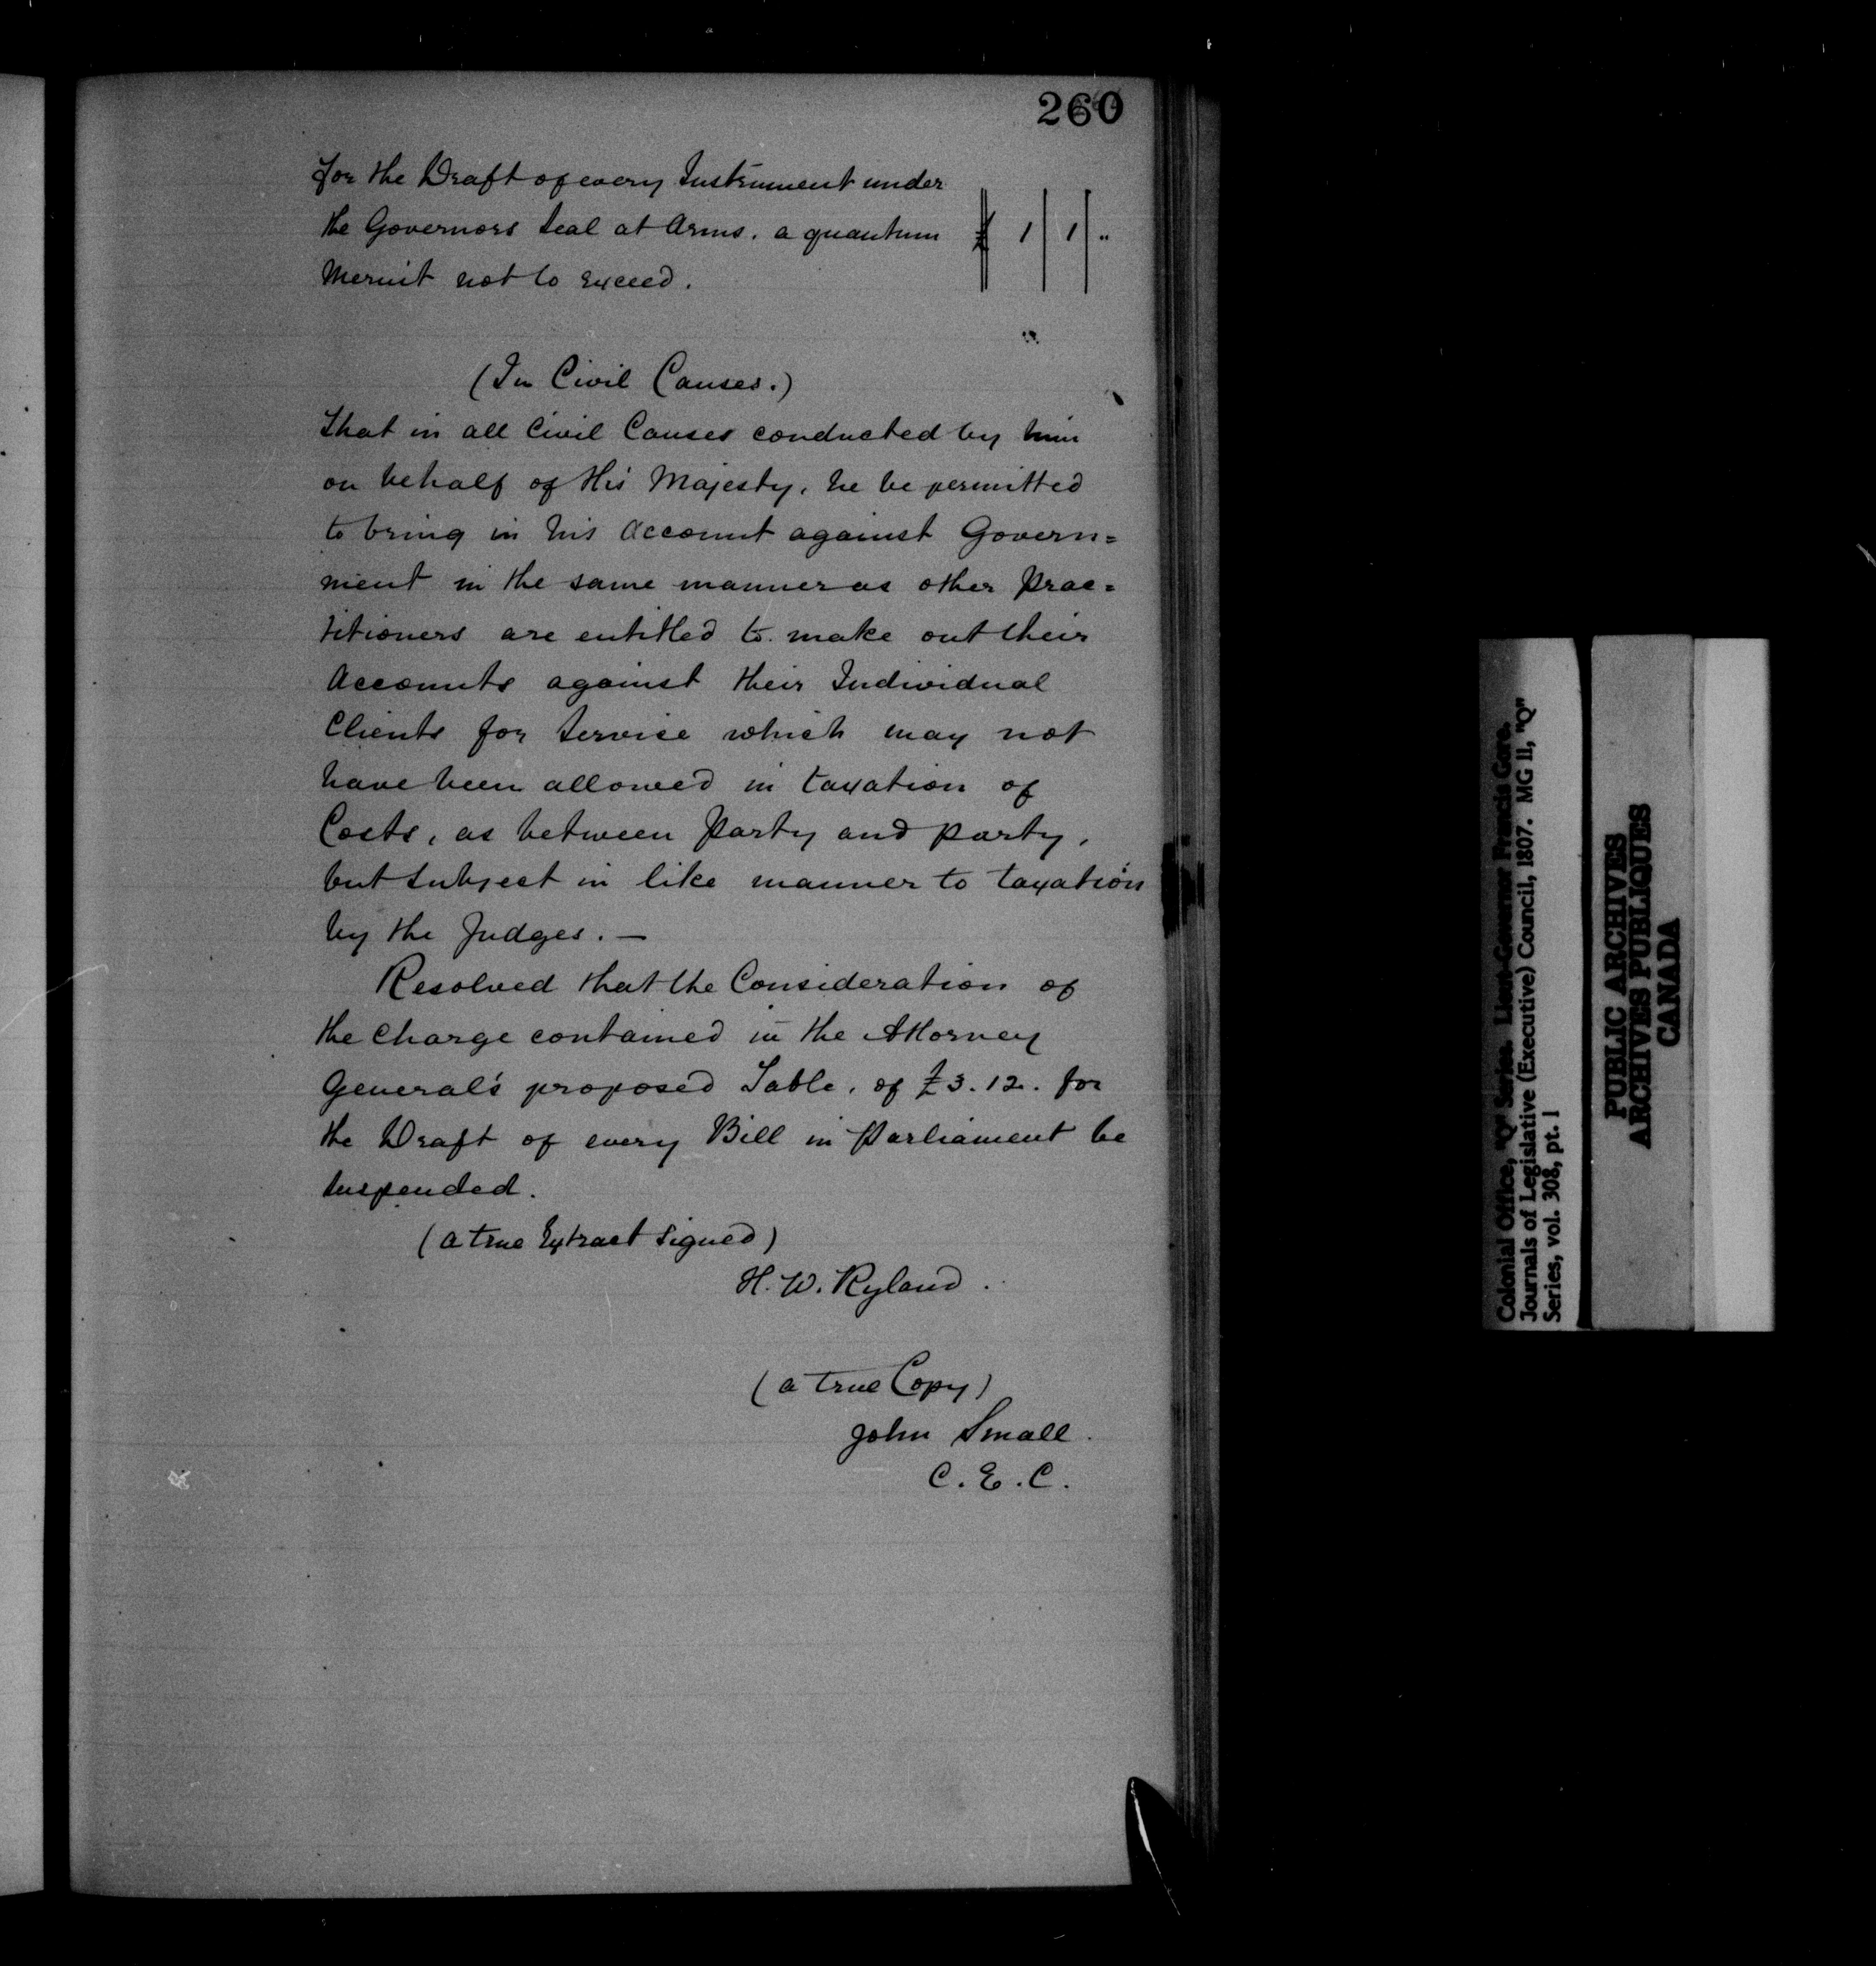 260
for the Draft of every Instrument under
the Governors Seal at Arms, a quantum £ 1 | 1 | "
Meruit not to exceed.
(In Civil Causes.)
That in all Civil Causes conducted by him
on behalf of His Majesty, he be permitted
to bring in his Account against Govern=
ment in the same manner as other Prac=
titioners are entitled to make out their
Accounts against their Individual
Clients for Service which may not
have been allowed in taxation of
Costs, as between Party and party,
but subject in like manner to taxation
by the Judges. —
Resolved that the Consideration of
the Charge contained in the Attorney
General's proposed Table, of £3.12. for
the Draft of every Bill in Parliament be
suspended.
(a true Extract signed)
H. W. Ryland.
(a true Copy)
John Small.
C. E. C.
Colonial Office, "Q" Series. Lieut-Governor Francis Gore.
Journals of Legislative (Executive) Council, 1807. MG 11, "Q"
Series, vol. 308, pt. 1
PUBLIC ARCHIVES
ARCHIVES PUBLIQUES
CANADA